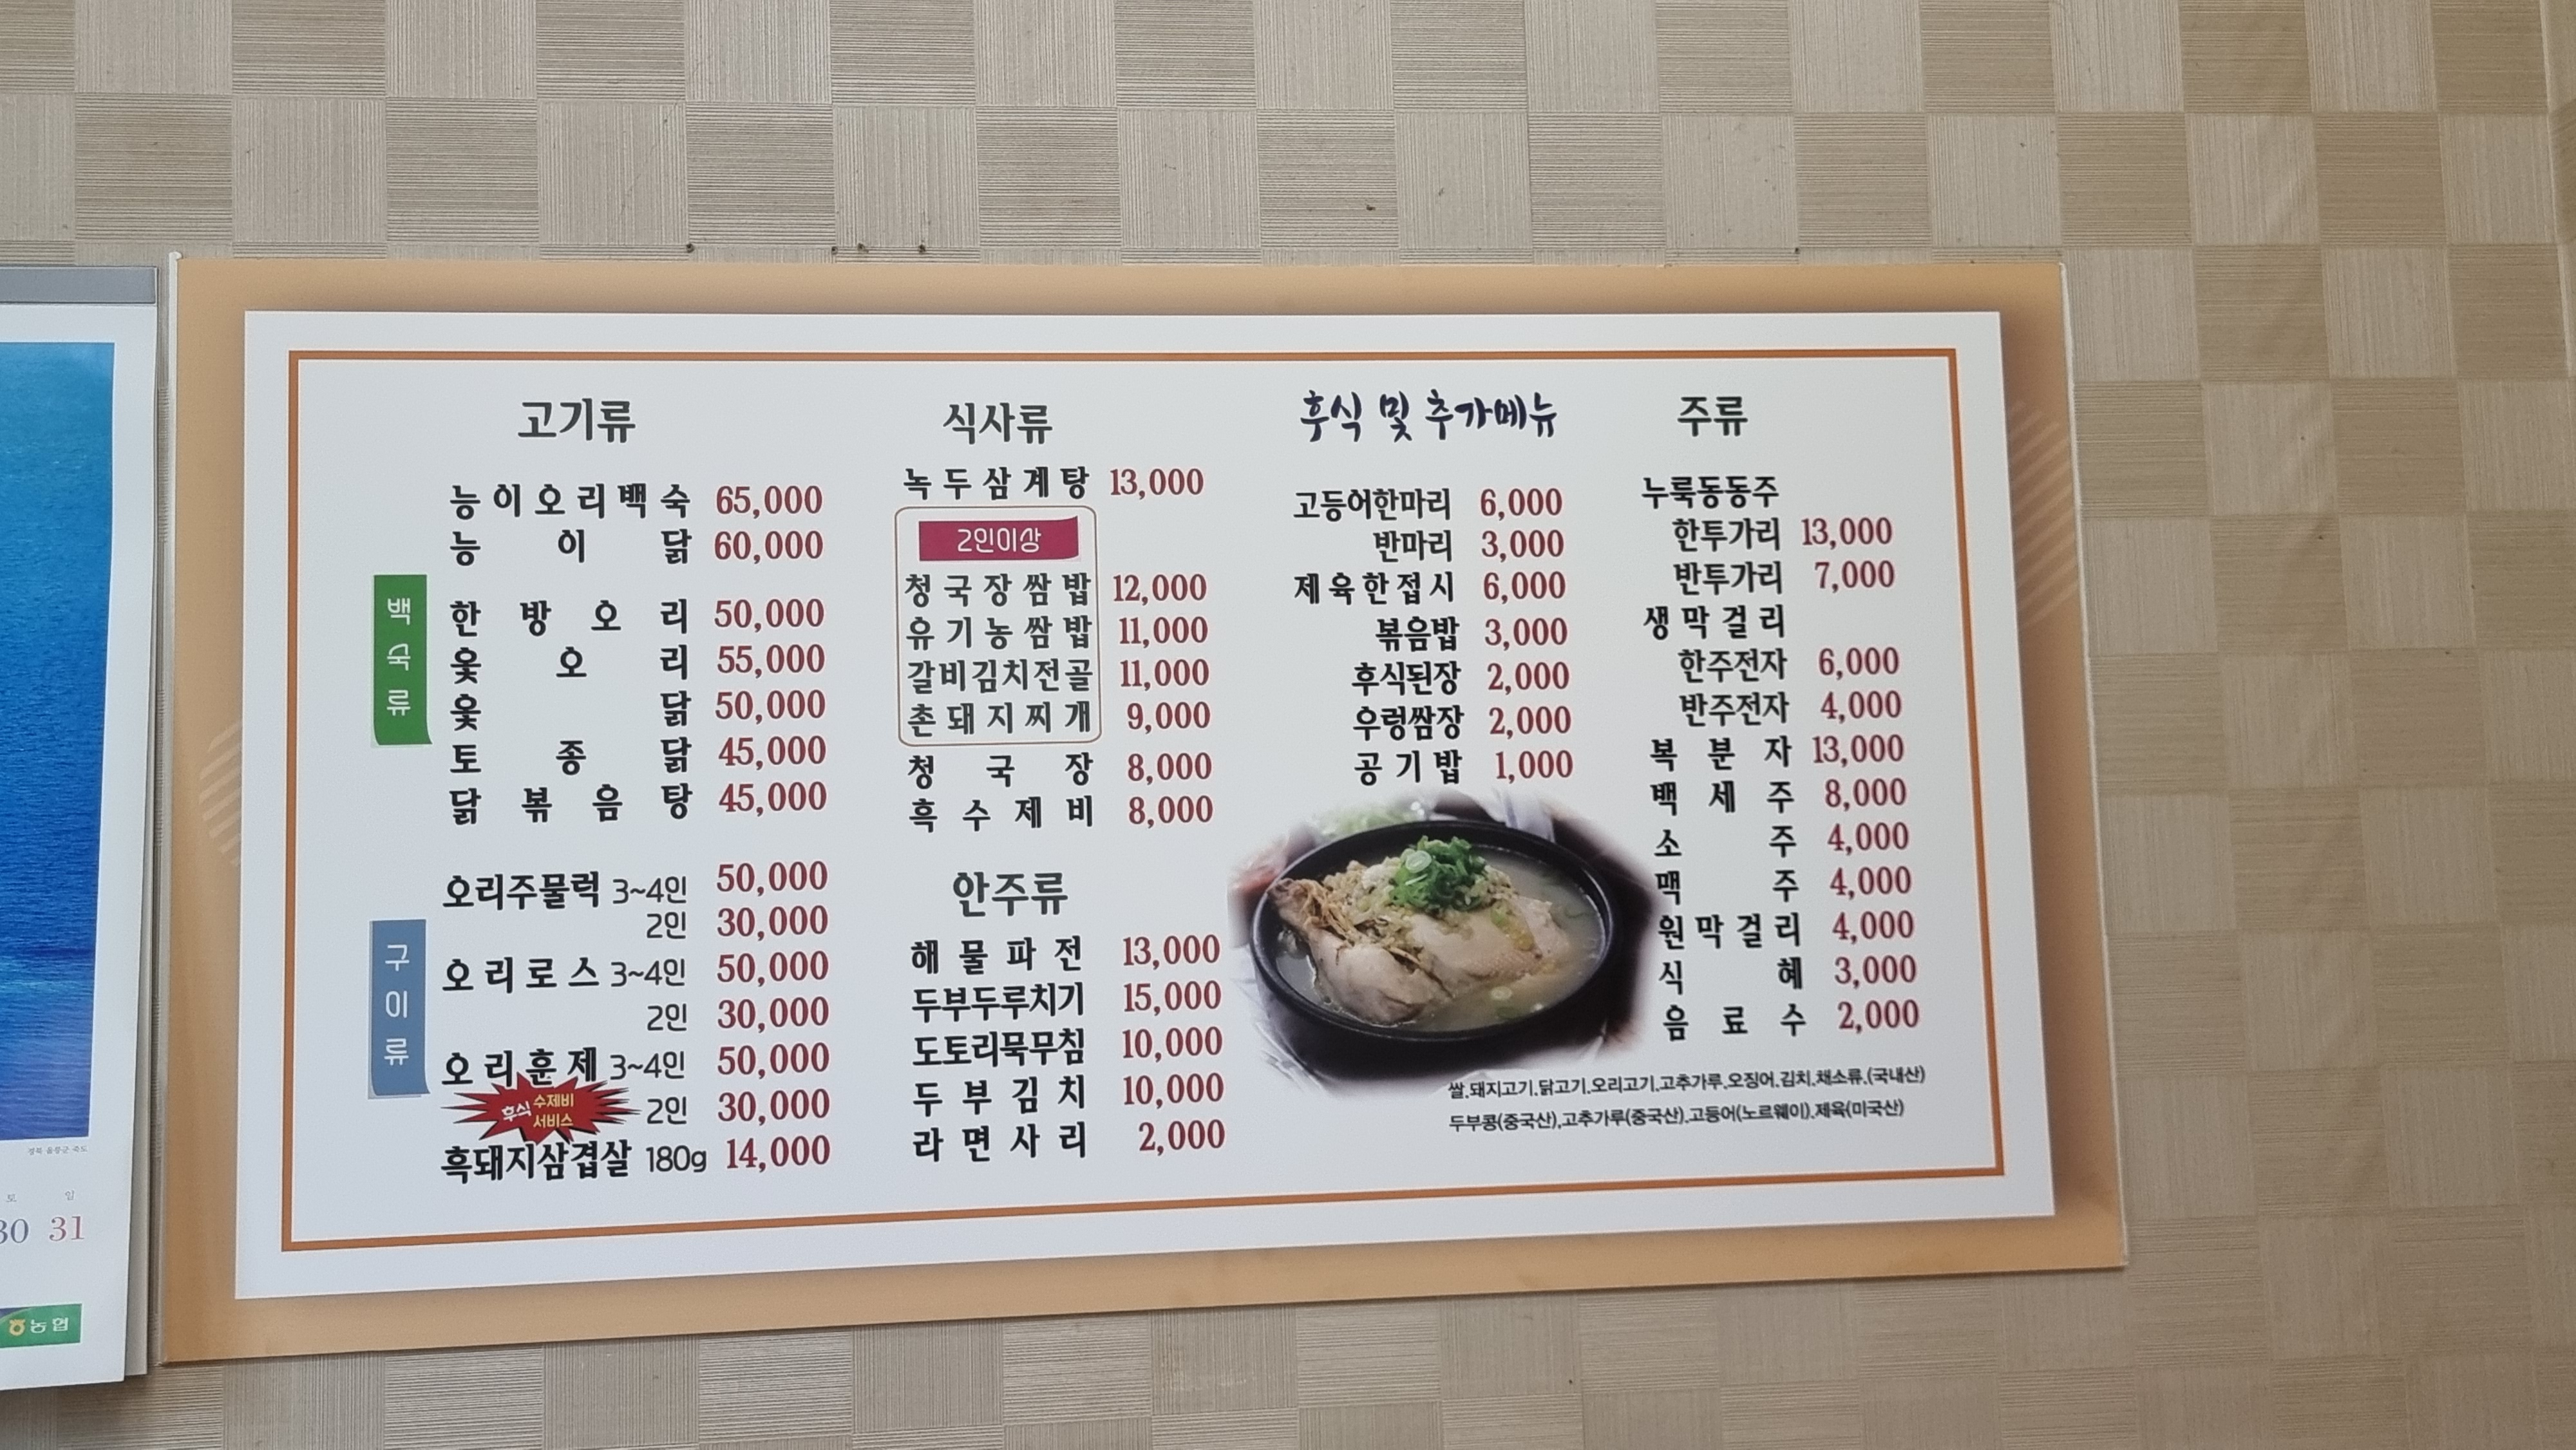 고기류
백숙류
능이오리백숙 65,000
능이닭 60,000
한방오리 50,000
옻오리 55,000
옻닭 50,000
토종닭 45,000
닭볶음탕 45,000
구이류
오리주물럭 3~4인 50,000
2인 30,000
오리로스 3~4인 50,000
2인 30,000
오리훈제 3~4인 50,000
후식 수제비 서비스
2인 30,000
흑돼지삼겹살 180g 14,000
식사류
녹두삼계탕 13,000
2인이상
청국장쌈밥 12,000
유기농쌈밥 11,000
갈비김치전골 11,000
촌돼지찌개 9,000
청국장 8,000
흑수제비 8,000
안주류
해물파전 13,000
두부두루치기 15,000
도토리묵무침 10,000
두부김치 10,000
라면사리 2,000
후식 및 추가메뉴
고등어한마리 6,000
반마리 3,000
제육한접시 6,000
볶음밥 3,000
후식된장 2,000
우렁쌈장 2,000
공기밥 1,000
주류
누룩동동주
한투가리 13,000
반투가리 7,000
생막걸리
한주전자 6,000
반주전자 4,000
복분자 13,000
백세주 8,000
소주 4,000
맥주 4,000
원막걸리 4,000
식혜 3,000
음료수 2,000
쌀.돼지고기.닭고기.오리고기.고추가루.오징어.김치.채소류.(국내산)
두부콩(중국산),고추가루(중국산).고등어(노르웨이).제육(미국산)
경북 울릉군 죽도
토 일
30 31
농협